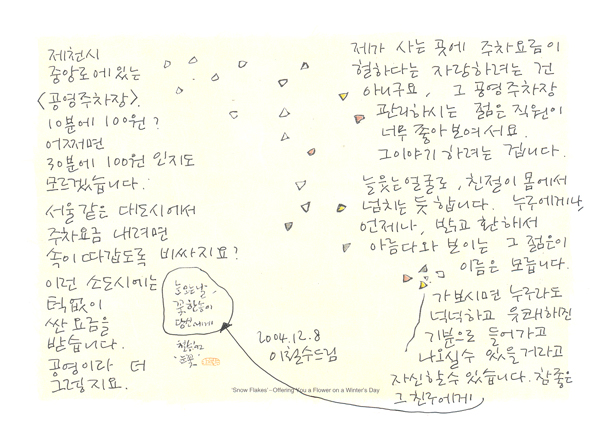 제천시
중앙로에 있는
<공영주차장>.
10분에 100원?
어쩌면
30분에 100원 인지도
모르겠습니다.
서울같은 대도시에서
주차요금 내려면
속이 따갑도록 비싸지요?
이런 소도시에는
턱없이
싼 요금을
받습니다.
공영이라 더
그렇지요.
눈오는날,
꽃한송이
당신에게
'눈꽃'
2004.12.8
이철수드림
제가 사는 곳에 주차요금이
헐하다는 자랑하려는 건
아니구요, 그 공영주차장
관리하시는 젊은 직원이
너무 좋아보여서요.
그이야기 하려는 겁니다.
늘웃는얼굴로, 친절이 몸에서
넘치는 듯 합니다. 누구에게나,
언제나, 밝고 환해서
아름다와 보이는 그 젊은이
이름은 모릅니다.
가보시면 누구라도
넉넉하고 유쾌해진
기분으로 들어가고
나오실수 있을거라고
자신할수 있습니다. 참좋은
그 친구에게
'Snow Flakes' - Offering You a Flower on a Winter's Day